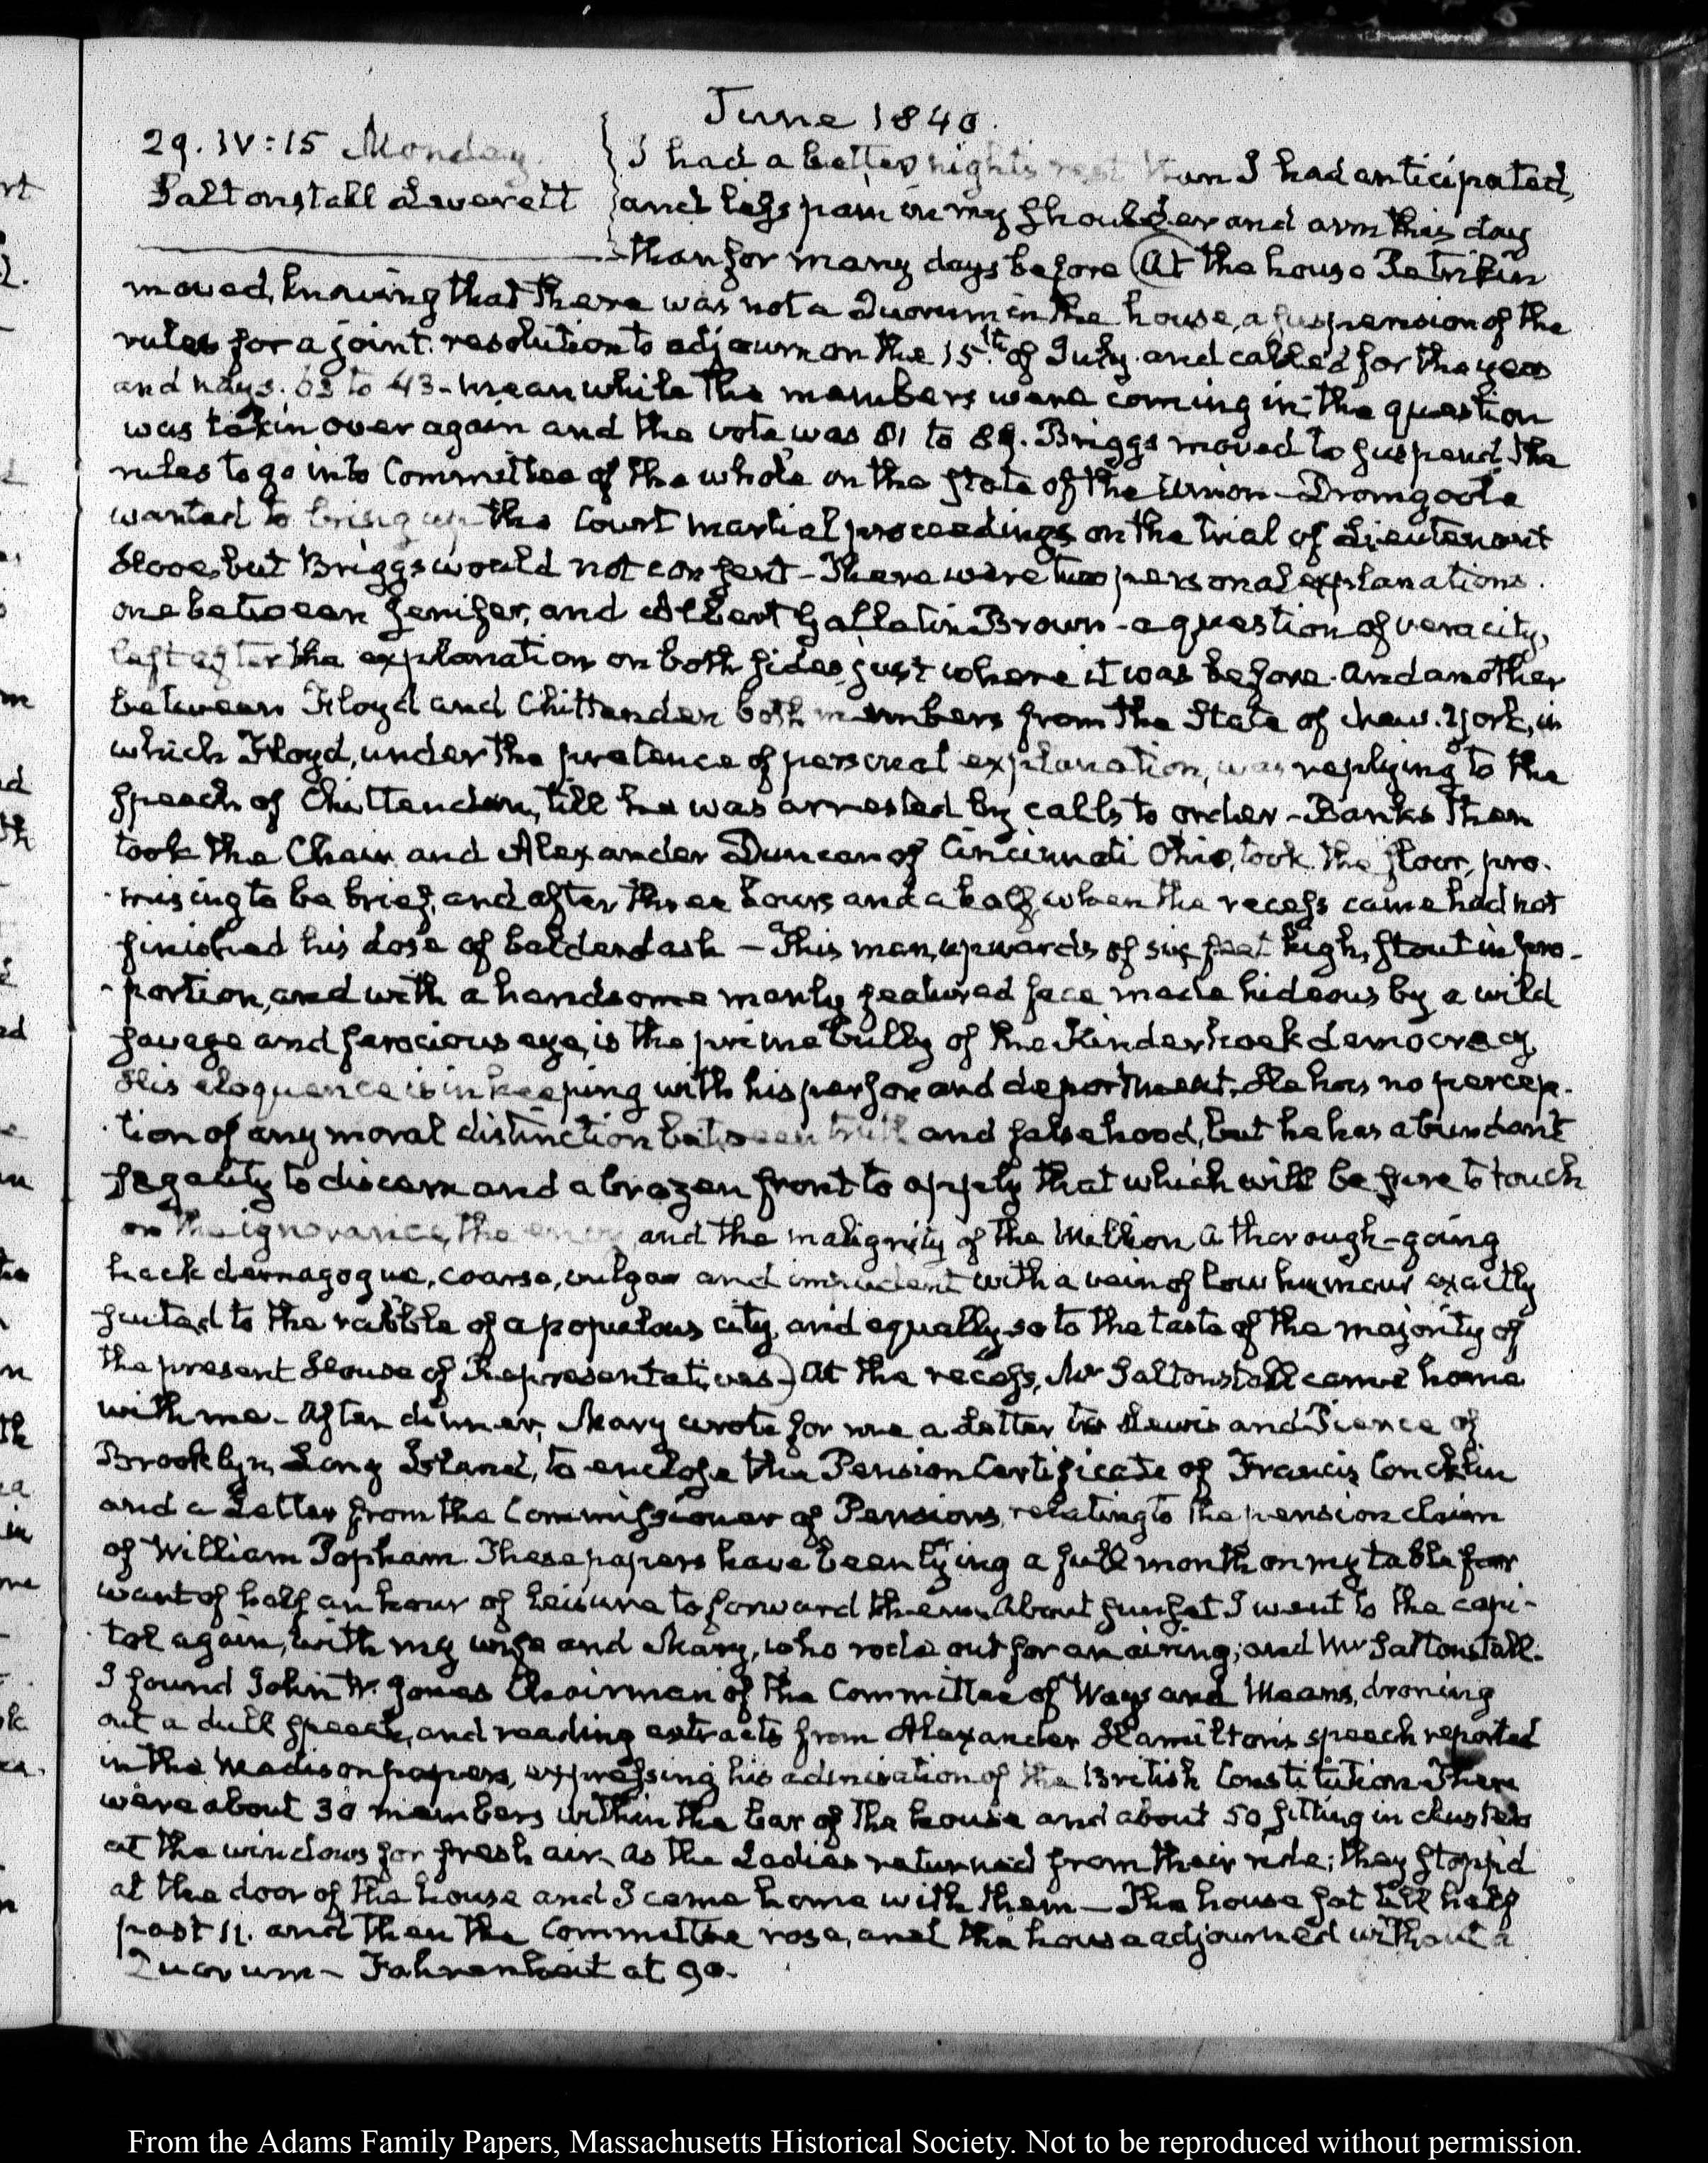 June 1840.
29. IV:15 Monday.
Saltonstall Leverett
I had a better nights rest than I had anticipated,
and less pain in my shoulder and arm this day
than for many days before (At the house Petrikin
moved, knowing that there was not a Quorum in the house, a suspension of the
rules for a joint resolution to adjourn on the 15th. of July. and called for the yeas
and nays. 63 to 43 - meanwhile the members were coming in: the question
was taken over again and the vote was 81 to 89. Briggs moved to suspend the
rules to go into Committee of the whole on the State of the Union - Dromgoole
wanted to bring up the Court martial proceedings on the trial of Lieutenant
Hooe, but Briggs would not consent - There were two personal explanations.
one between Jenifer, and Albert Gallatin Brown - a question of veracity,
left after the explanation on both sides, just where it was before. And another
between Floyd and Chittenden both members from the State of New. York, in
which Floyd, under the pretence of personal explanation, was replying to the
speech of Chittenden, till he was arrested by calls to order - Banks then
took the Chair and Alexander Duncan of Cincinnati Ohio, took the floor, pro-
mising to be brief, and after three hours and a half, when the recess came had not
finished his dose of balderdash - This man, upwards of six feet high, stout in pro-
portion, and with a handsome manly featured face made hideous by a wild
savage and ferocious eye, is the prime bully of the Kinderhook democracy,
His eloquence is in keeping with his person and deportment. He has no percep-
tion of any moral distinction between truth and falsehood, but he has abundant
sagacity to discern and a brazen front to apply that which will be sure to touch
on the ignorance, the envy, and the malignity of the Million, A thorough-going
hack demagogue, coarse, vulgar and impudent with a vein of low humour exactly
suited to the rabble of a populous city, and equally so to the taste of the majority of
the present House of Representatives) At the recess, Mr Saltonstall came home
with me. After dinner, Mary wrote for me a Letter to Lewis and Pierce of
Brooklyn, Long Island, to enclose the Pension Certificate of Francis Concklin
and a Letter from the Commissioner of Pensions, relating to the pension claim
of William Popham. These papers have been lying a full month on my table for
want of half an hour of leisure to forward them. About sunset I went to the capi-
tol again, with my wife and Mary, who rode out for an airing; and Mr Saltonstall.
I found John W. Jones Chairman of the Committee of Ways and Means, droning
out a dull speech, and reading extracts from Alexander Hamilton's speech reported
in the Madison papers, expressing his admiration of the British Constitution. There
were about 30 members within the bar of the house and about 50 sitting in clusters
at the windows for fresh air. As the Ladies returned from their ride; they stopp'd
at the door of the house and I came home with them - The house sat till half
past 11. and then the Committee rose, and the house adjourned without a
Quorum - Fahrenheit at 90.
From the Adams Family Papers, Massachusetts Historical Society. Not to be reproduced without permission.